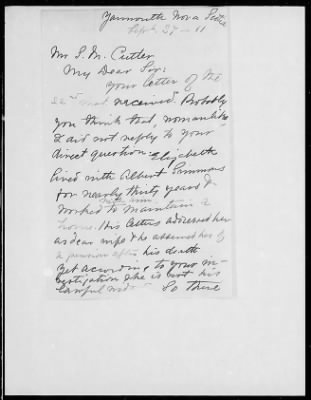 Yarmouth Nova Scotia
Sept. 27 - 11
Mr S. M. Cutler
My Dear Sir:
your letter of the
22nd inst. received. Probably
you think that, woman like
I did not reply to your
direct question. Elizabeth
lived with Albert Simmons
for nearly thirty years &
with him
worked to maintain a
home. His letters addressed her
as dear wife & he assured her of
a pension after his death
yet according to your in-
vestigation she is not his
lawful
So there